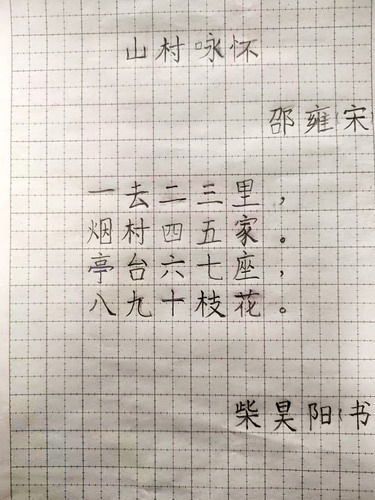 山村咏怀
邵雍宋
一去二三里，
烟村四五家。
亭台六七座，
八九十枝花。
柴昊阳书